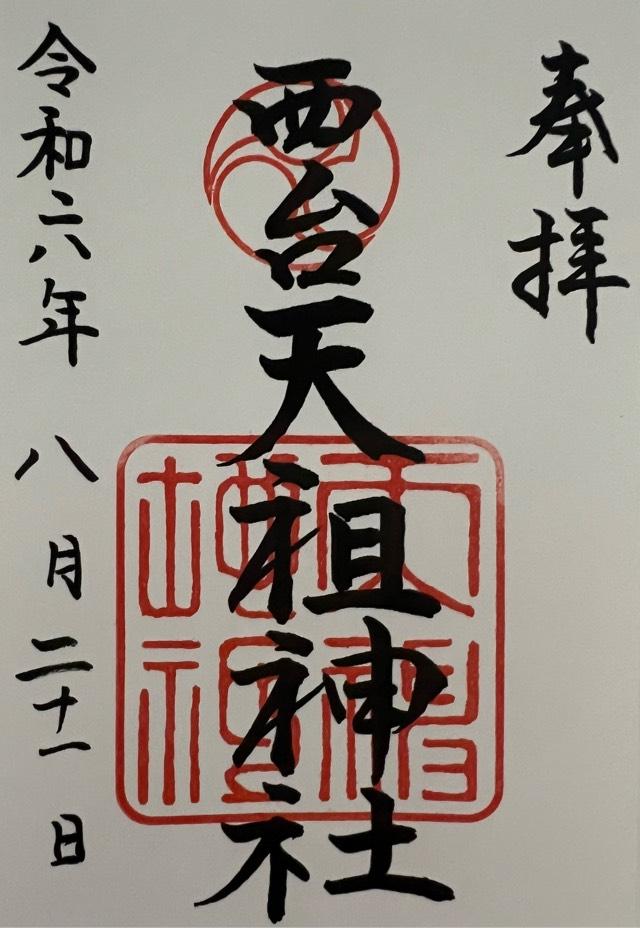 奉拝
西台天祖神社
令和六年 八月二十一日